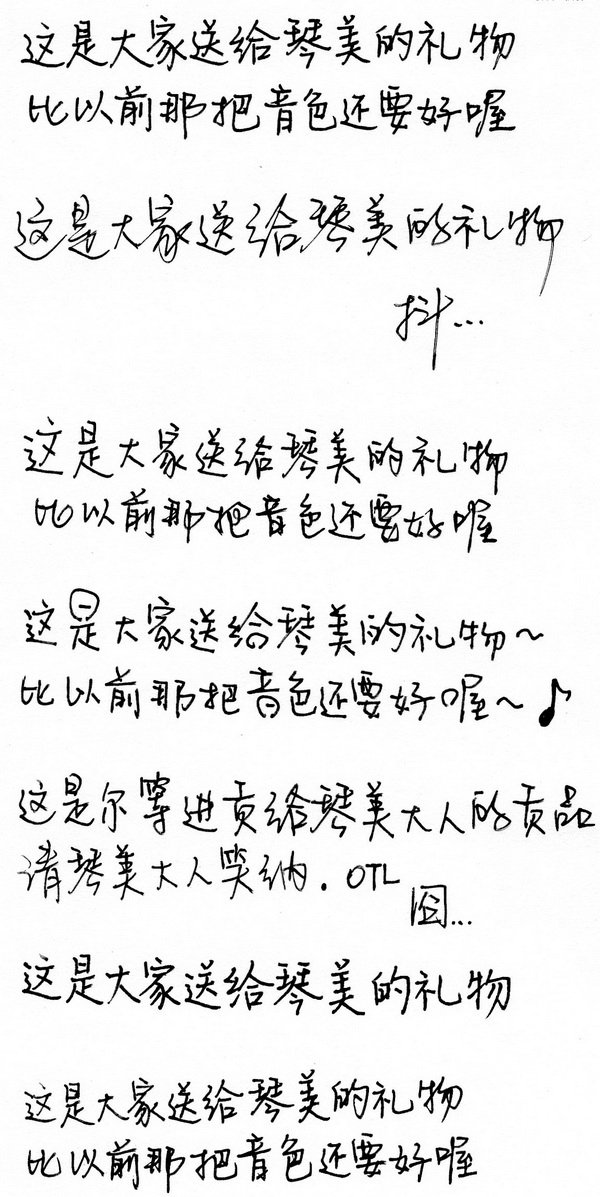 这是大家送给琴美的礼物
比以前那把音色还要好喔
这是大家送给琴美的礼物
抖...
这是大家送给琴美的礼物
比以前那把音色还要好喔
这是大家送给琴美的礼物~
比以前那把音色还要好喔~♪
这是尔等进贡给琴美大人的贡品
请琴美大人笑纳.OTL
囧...
这是大家送给琴美的礼物
这是大家送给琴美的礼物
比以前那把音色还要好喔